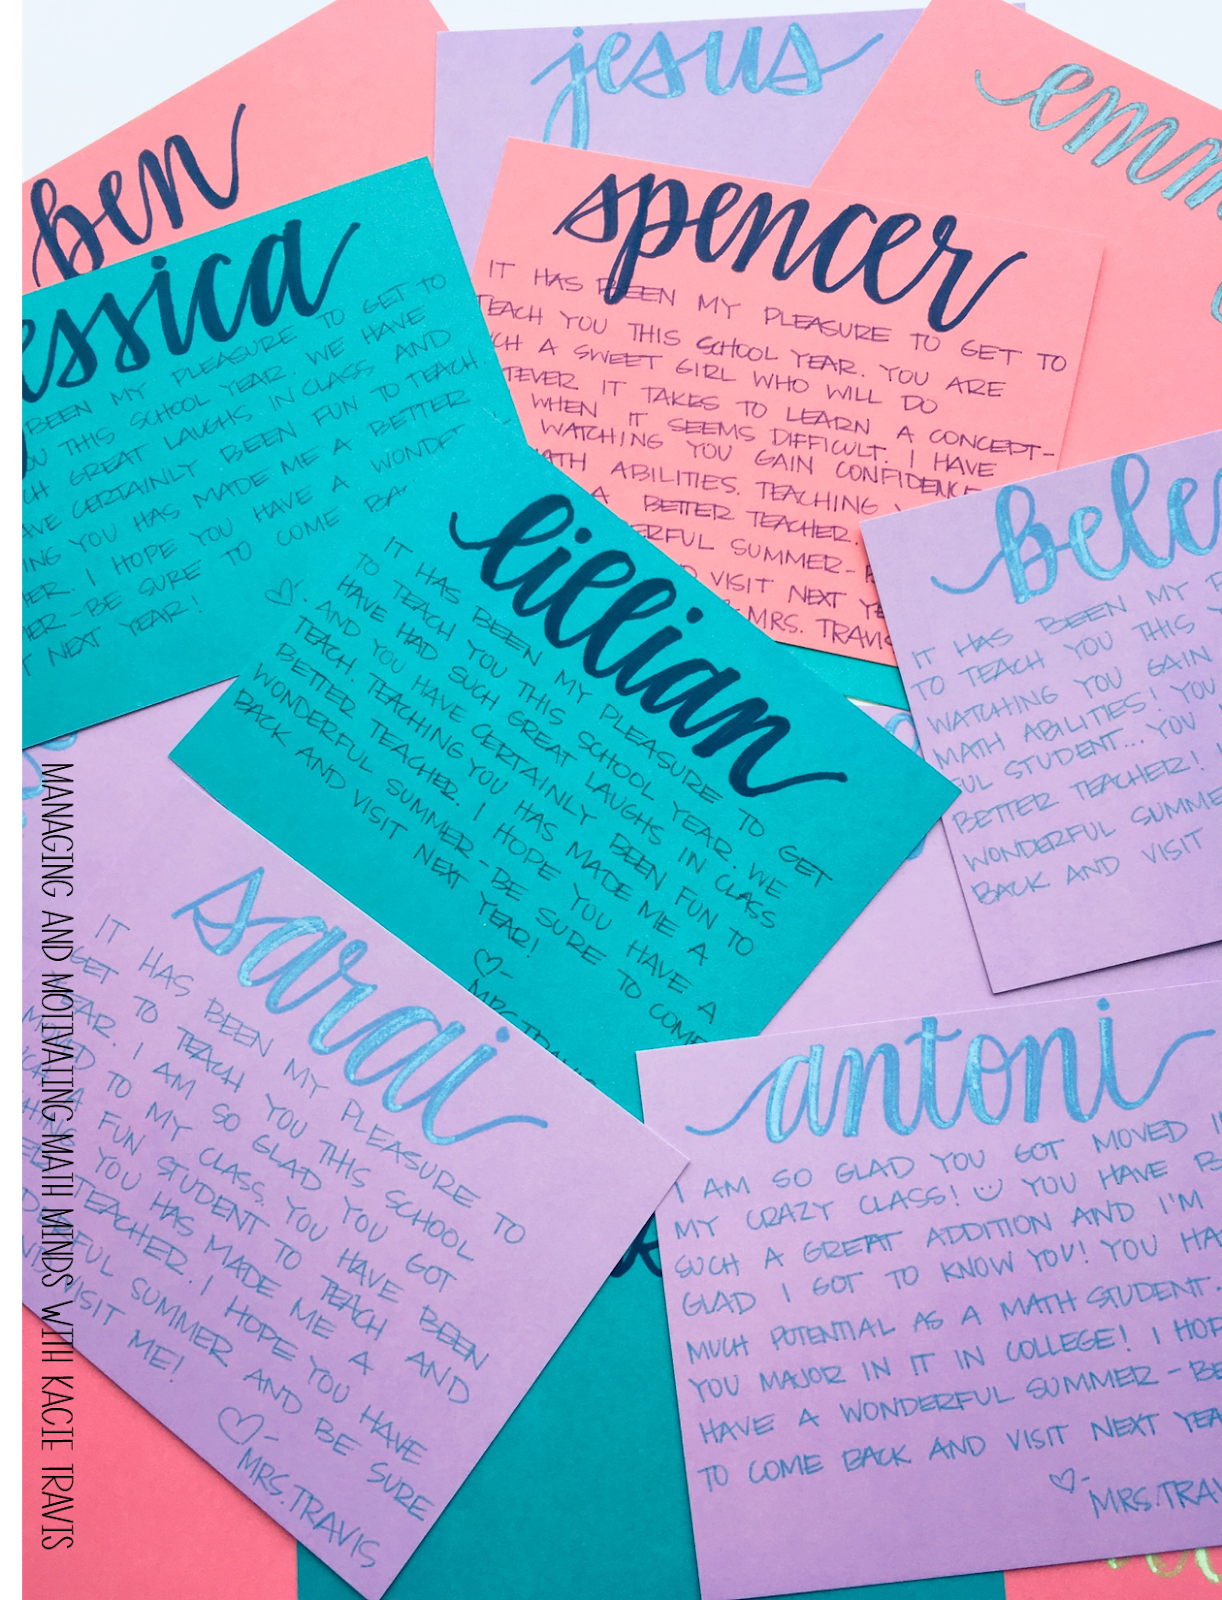 jesus
emm
ben
spencer
IT HAS BEEN MY PLEASURE TO GET TO
TEACH YOU THIS SCHOOL YEAR. YOU ARE
CH A SWEET GIRL WHO WILL DO
TEVER IT TAKES TO LEARN A CONCEPT-
WHEN IT SEEMS DIFFICULT. I HAVE
WATCHING YOU GAIN CONFIDENCE
ATH ABILITIES. TEACHING
A BETTER TEACHER.
ERFUL SUMMER-
VISIT NEXT YE
MRS. TRAVIS
essica
BEEN MY PLEASURE TO GET TO
OU THIS SCHOOL YEAR. WE HAVE
CH GREAT LAUGHS IN CLASS AND
AVE CERTAINLY BEEN FUN TO TEACH.
ING YOU HAS MADE ME A BETTER
ER. I HOPE YOU HAVE A WONDE
ER-BE SURE TO COME BA
T NEXT YEAR!
lillian
IT HAS BEEN MY PLEASURE TO GET
TO TEACH YOU THIS SCHOOL YEAR. WE
HAVE HAD SUCH GREAT LAUGHS IN CLASS
AND YOU HAVE CERTAINLY BEEN FUN TO
TEACH. TEACHING YOU HAS MADE ME A
BETTER TEACHER. I HOPE YOU HAVE A
WONDERFUL SUMMER-BE SURE TO COME
BACK AND VISIT NEXT YEAR!
MRS. TRAVIS
bele
IT HAS BEEN MY P
TO TEACH YOU THIS
WATCHING YOU GAIN
MATH ABILITIES! YOU
FUL STUDENT...YOU
BETTER TEACHER!
WONDERFUL SUMME
BACK AND VISIT
sarai
IT HAS BEEN MY PLEASURE TO
GET TO TEACH YOU THIS SCHOOL
EAR. I AM SO GLAD YOU GOT
MOVED TO MY CLASS. YOU HAVE BEEN
UCH A FUN STUDENT TO TEACH AND
HING YOU HAS MADE ME A
TEACHER. I HOPE YOU HAVE
DERFUL SUMMER AND BE SURE
VISIT ME!
MRS. TRAVIS
antoni
I AM SO GLAD YOU GOT MOVED I
MY CRAZY CLASS! YOU HAVE B
SUCH A GREAT ADDITION AND I'M
GLAD I GOT TO KNOW YOU! YOU HA
MUCH POTENTIAL AS A MATH STUDENT.
YOU MAJOR IN IT IN COLLEGE! I HOP
HAVE A WONDERFUL SUMMER-BE
TO COME BACK AND VISIT NEXT YEA
MRS. TRAV
MANAGING AND MOTIVATING MATH MINDS WITH KACIE TRAVIS